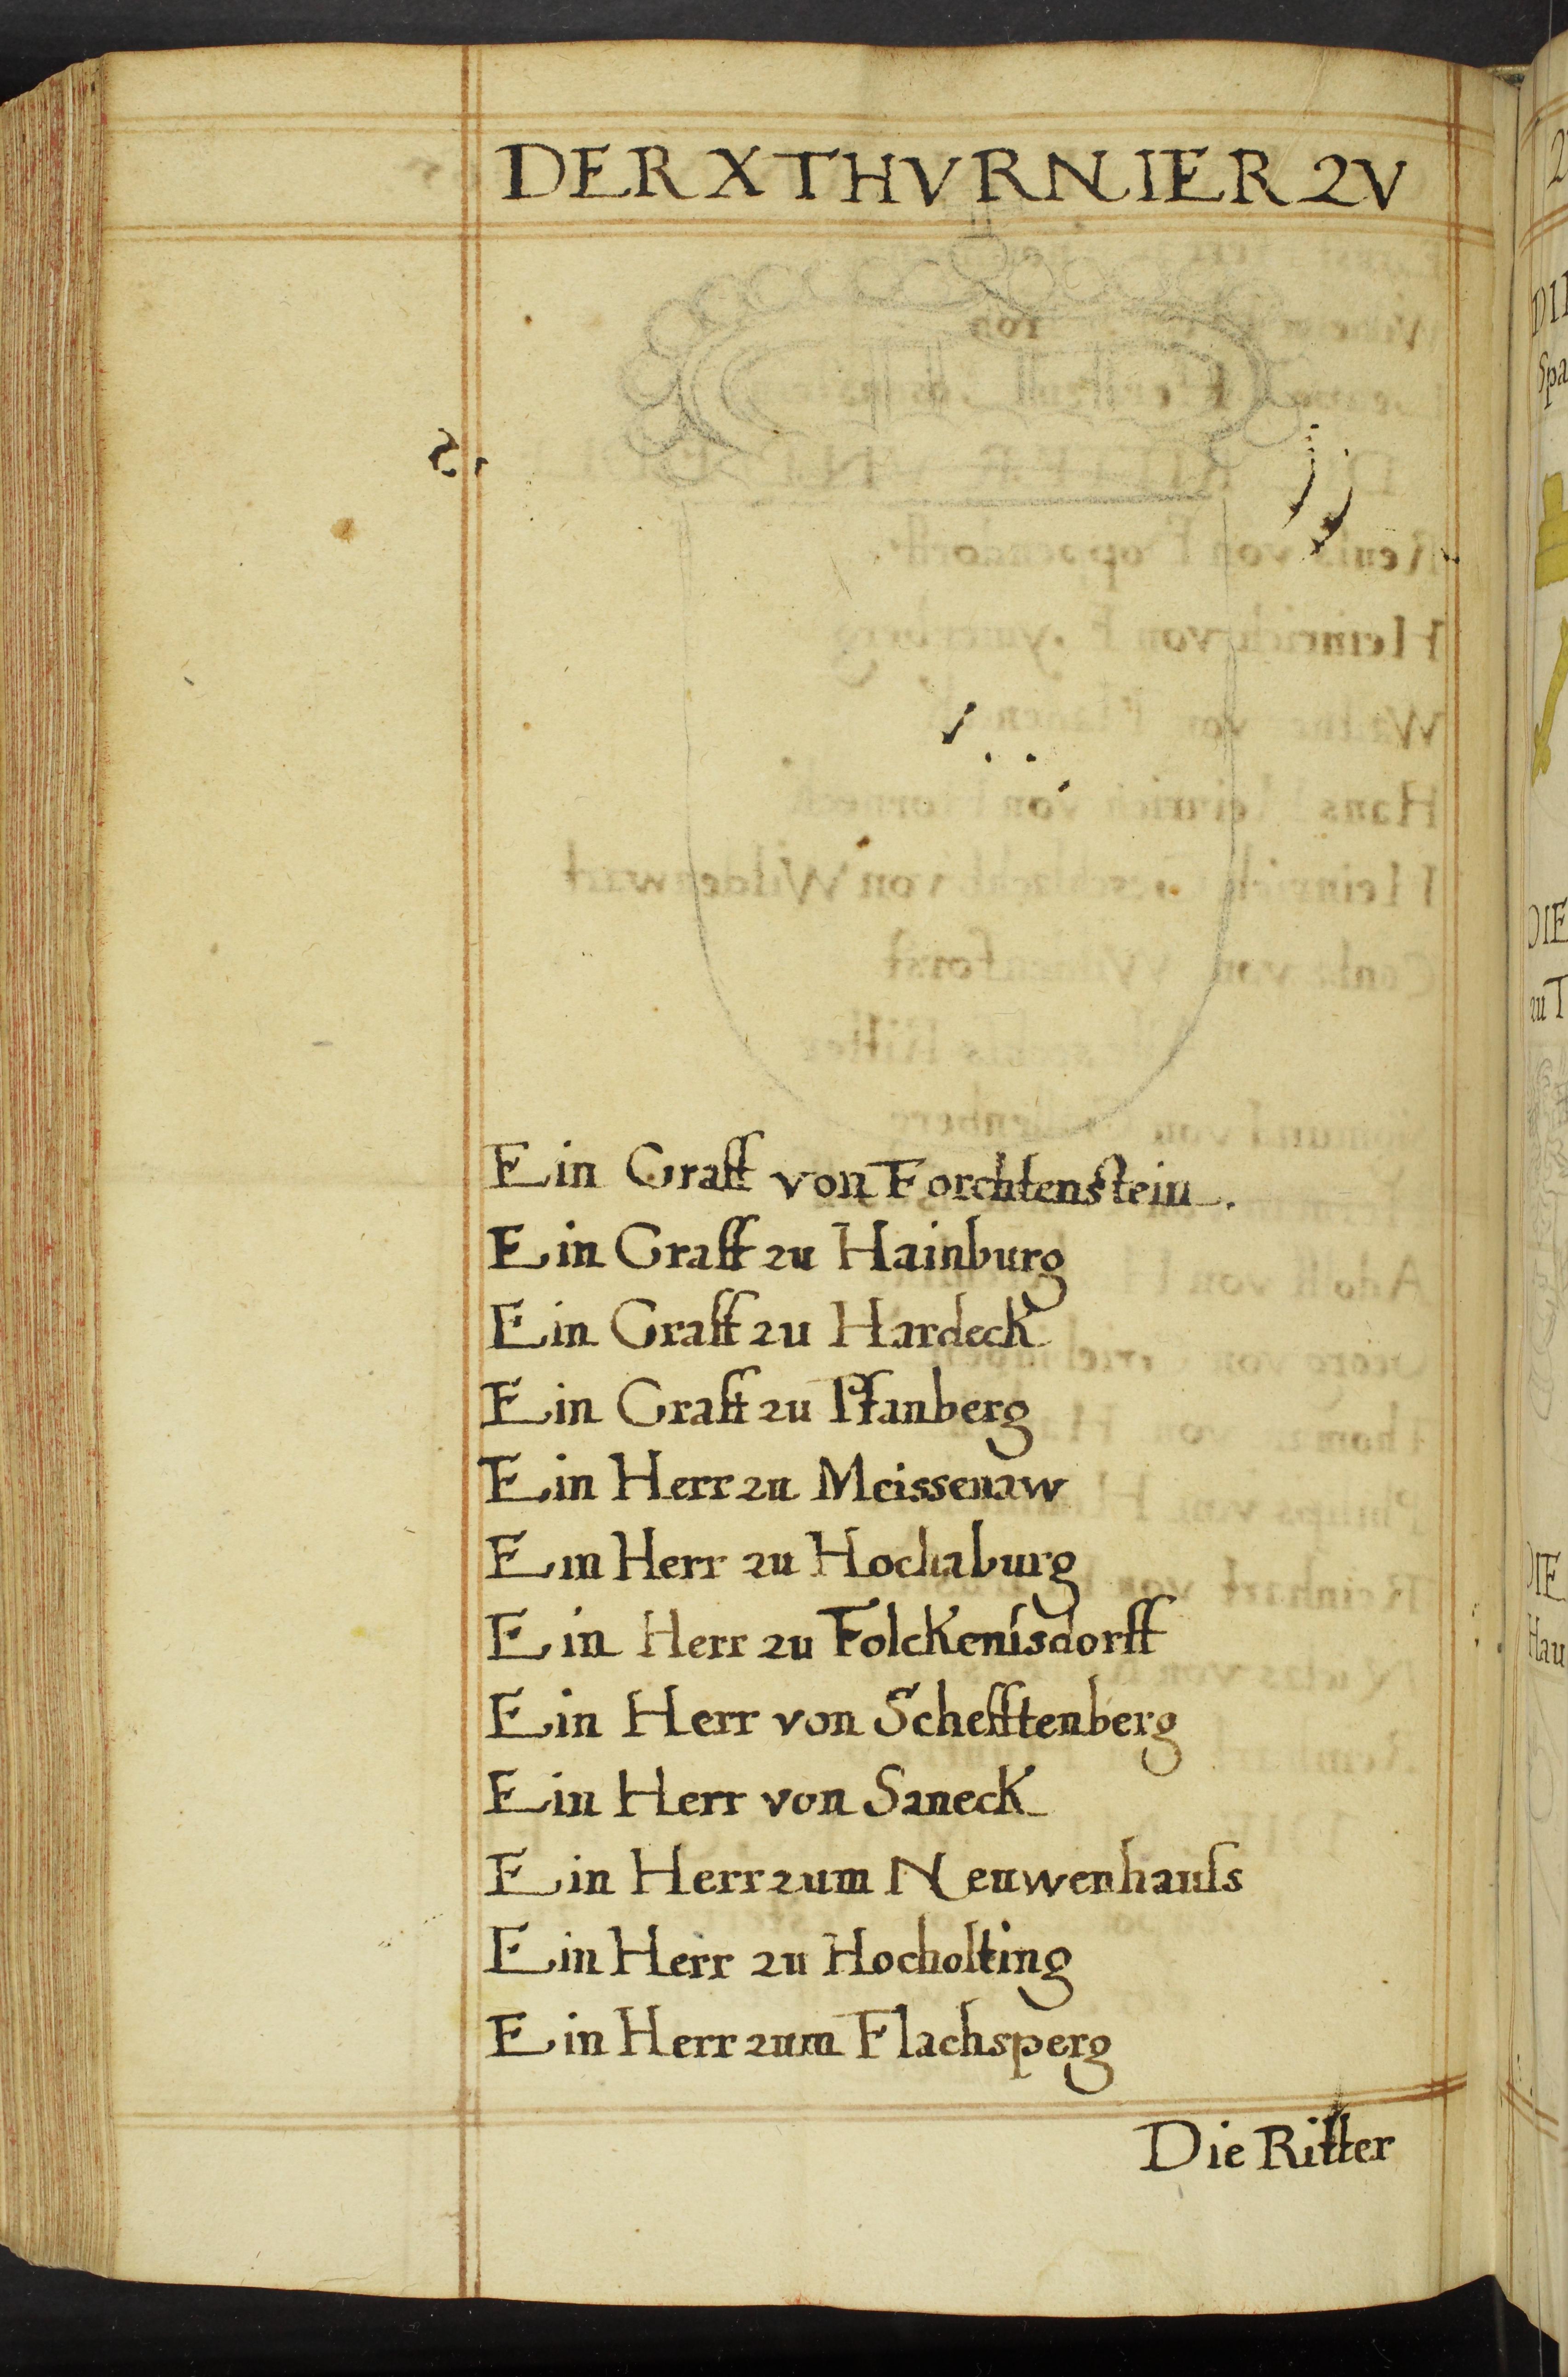 DER X THVRNIER ZV
Ein Graff von Forchtenstein.
Ein Graff zu Hainburg
Ein Graff zu Hardeck
Ein Graff zu Pfanberg
Ein Herr zu Meissenaw
Ein Herr zu Hochaburg
Ein Herr zu Folckenisdorff
Ein Herr von Schefftenberg
Ein Herr von Saneck
Ein Herr zum Neuwenhauſs
Ein Herr zu Hocholting
Ein Herr zum Flachsperg
Die Ritter